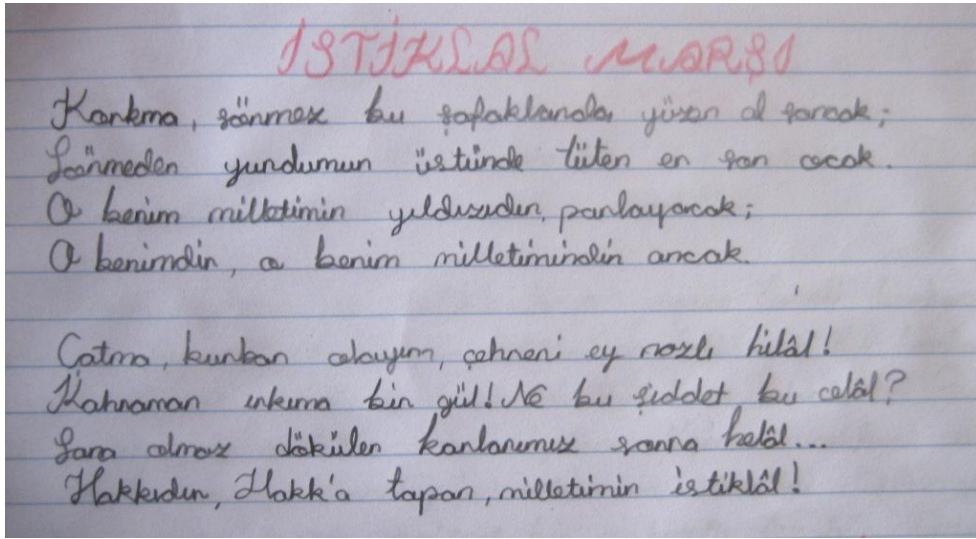 İSTİKLAL MARŞI
Korkma, sönmez bu şafaklarda yüzen al sancak;
Sönmeden yurdumun üstünde tüten en son ocak.
O benim milletimin yıldızıdır, parlayacak;
O benimdir, o benim milletimindir ancak.
Çatma, kurban olayım, çehreni ey nazlı hilâl!
Kahraman ırkıma bir gül! Ne bu şiddet bu celâl?
Sana olmaz dökülen kanlarımız sonra helâl...
Hakkıdır, Hakk'a tapan, milletimin istiklâl!